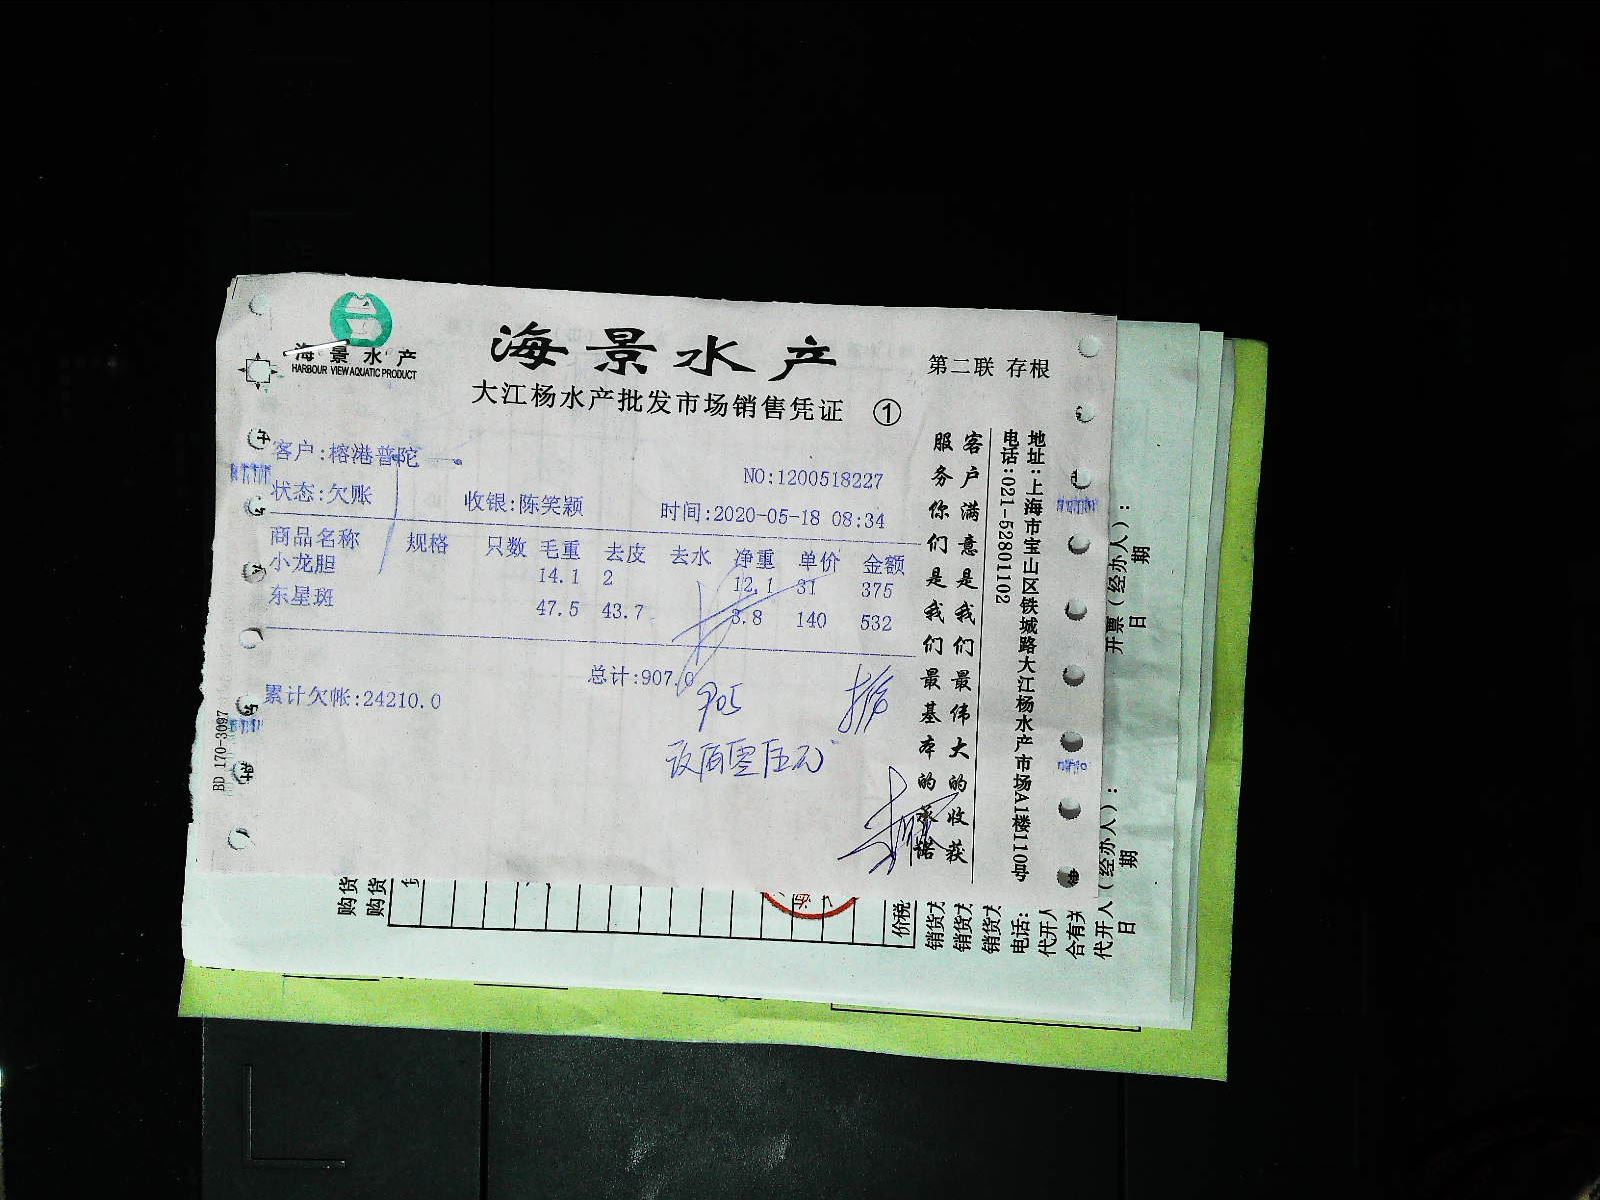 海景水产
HARBOUR VIEW AQUATIC PRODUCT
海景水产
第二联 存根
大江杨水产批发市场销售凭证 ①
客户:榕港普陀
NO:1200518227
状态:欠账 收银:陈笑颖 时间:2020-05-18 08:34
商品名称 规格 只数 毛重 去皮 去水 净重 单价 金额
小龙胆 14.1 2 12.1 31 375
东星斑 47.5 43.7 3.8 140 532
总计:907.0
累计欠帐:24210.0
905
客户满意是我们最伟大的收获
服务你们是我们最基本的承诺
地址:上海市宝山区铁城路大江杨水产市场A1楼110号
电话:021-52801102
BD 170-3097
购货
购货
价税
销货方
销货方
销货方
电话:
代开人
合有关
开票(经办人):
日 期
代开人(经办人):
日 期